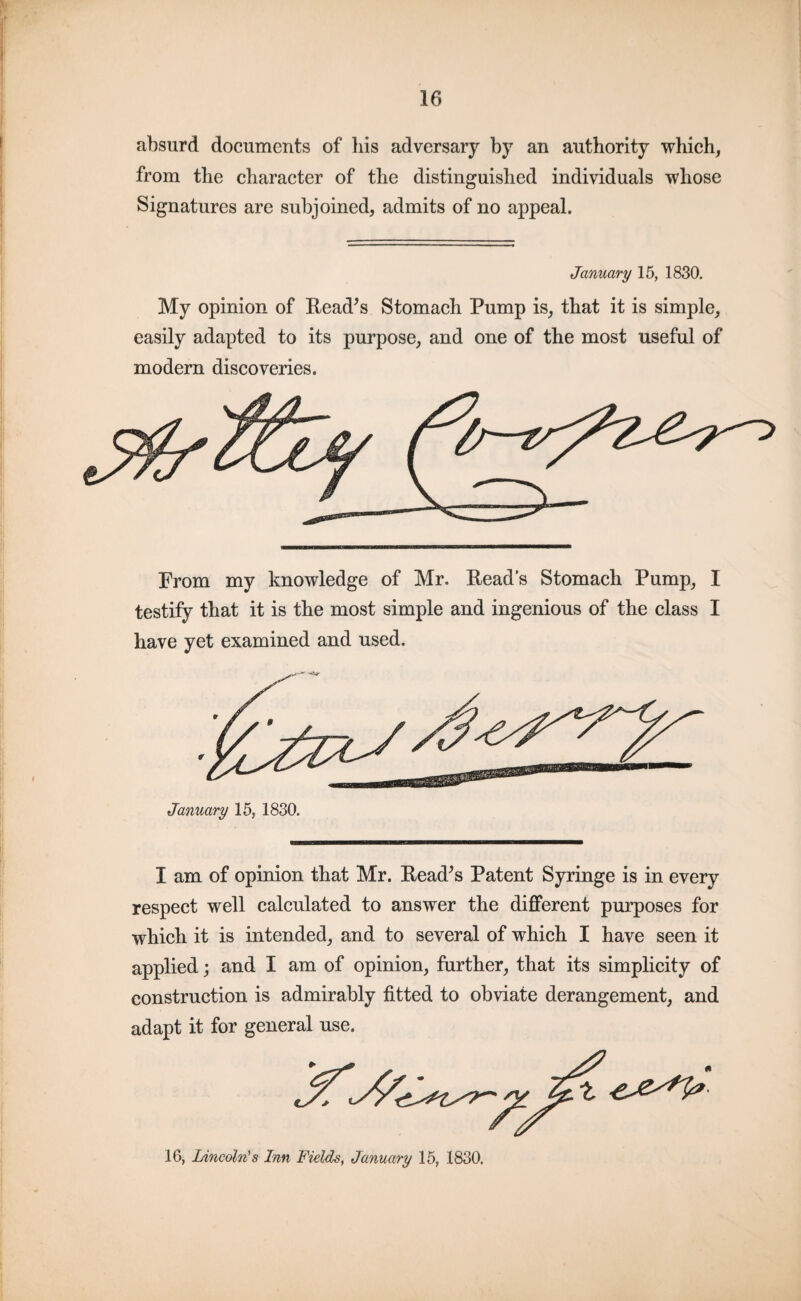 16
absurd documents of his adversary by an authority which,
from the character of the distinguished individuals whose
Signatures are subjoined, admits of no appeal.
January 15, 1830.
My opinion of Read's Stomach Pump is, that it is simple,
easily adapted to its purpose, and one of the most useful of
modern discoveries.
Astley Cooper
From my knowledge of Mr. Read's Stomach Pump, I
testify that it is the most simple and ingenious of the class I
have yet examined and used.
January 15, 1830.
I am of opinion that Mr. Read's Patent Syringe is in every
respect well calculated to answer the different purposes for
which it is intended, and to several of which I have seen it
applied; and I am of opinion, further, that its simplicity of
construction is admirably fitted to obviate derangement, and
adapt it for general use.
16, Lincoln's Inn Fields, January 15, 1830.